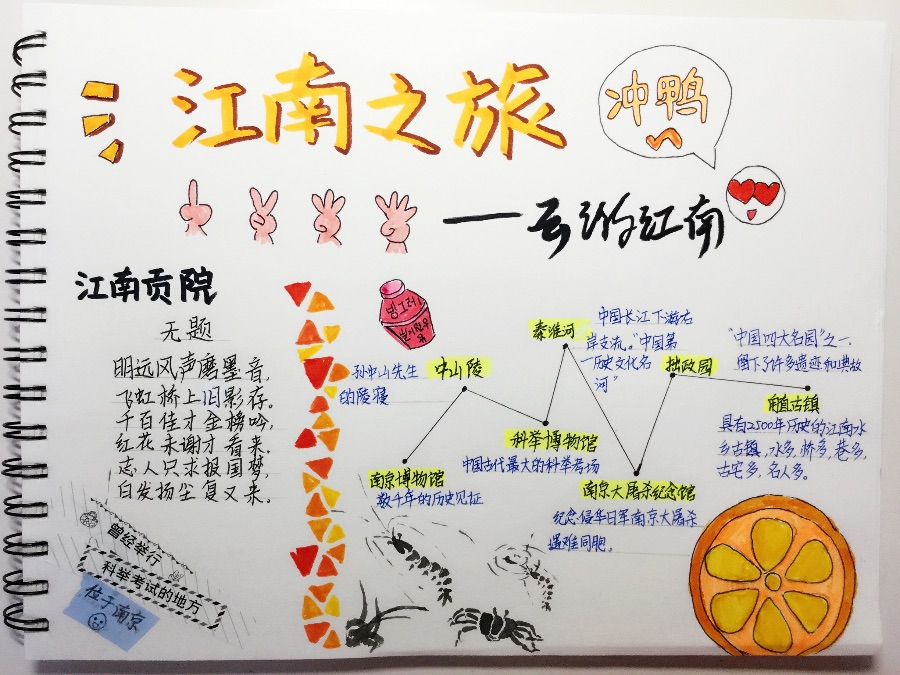 江南之旅
冲鸭
——云约江南
江南贡院
无题
明远风声磨墨音，
飞虹桥上旧影存。
千百佳才金榜吟，
红花未谢才看来。
志人只求报国梦，
白发扬尘复又来。
曾经举行
科举考试的地方
位于南京
빙그레
南京博物馆
数千年的历史见证
中山陵
孙中山先生
的陵寝
科举博物馆
中国古代最大的科举考场
秦淮河
中国长江下游右
岸支流。“中国第
一历史文化名
河”
南京大屠杀纪念馆
纪念侵华日军南京大屠杀
遇难同胞。
拙政园
“中国四大名园”之一
留下了许多遗迹和典故
甪直古镇
具有2500年历史的江南水
乡古镇，水多，桥多，巷多，
古宅多，名人多。